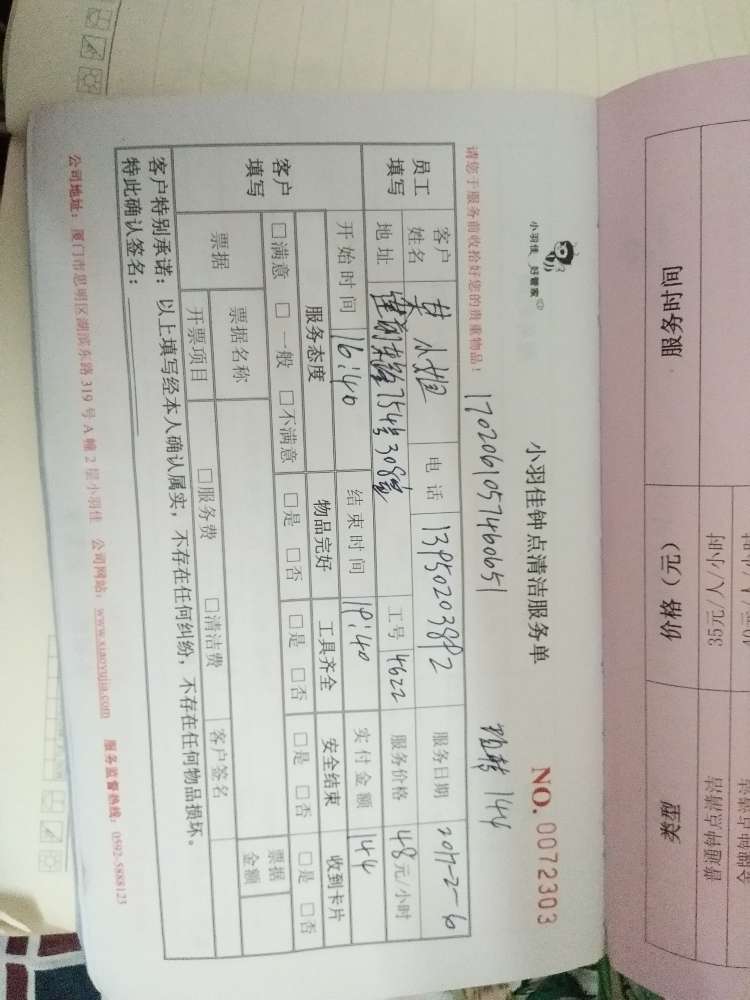 小羽佳 好管家
小羽佳钟点清洁服务单 NO. 0072303
1702061057460651 144
请您于服务前收拾好您的贵重物品！
员工填写 客户姓名 小姐 电话 13950203892 服务日期 2017-2-6
地址 莲前东路754号308室 工号 4622 服务价格 48元/小时
客户填写 开始时间 16:40 结束时间 19:40 实付金额 144
服务态度 物品完好 工具齐全 安全结束 收到卡片
□满意 □一般 □不满意 □是 □否 □是 □否 □是 □否 □是 □否
票据 票据名称 □服务费 □清洁费 客户签名 票据金额
开票项目
客户特别承诺：以上填写经本人确认属实，不存在任何纠纷，不存在任何物品损坏。
特此确认签名：
公司地址：厦门市思明区湖滨东路319号A幢2层小羽佳 公司网站：www.xiaoyujia.com 服务监督热线：0592-5888123
服务时间 价格（元） 类型
35元/人/小时 普通钟点清洁